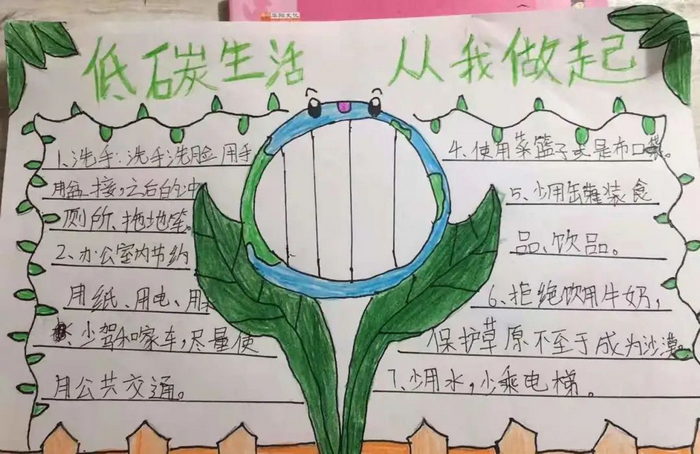 低碳生活 从我做起
1、洗手:洗手洗脸用手
用盆接,之后的冲
厕所、拖地等。
2、办公室内节约
用纸、用电、用
少驾和家车,尽量使
用公共交通。
4、使用菜篮子或是布口袋。
5、少用缶罐装食
品、饮品。
6、拒绝饮用牛奶,
保护草原不至于成为沙漠。
7、少用水,少乘电梯。